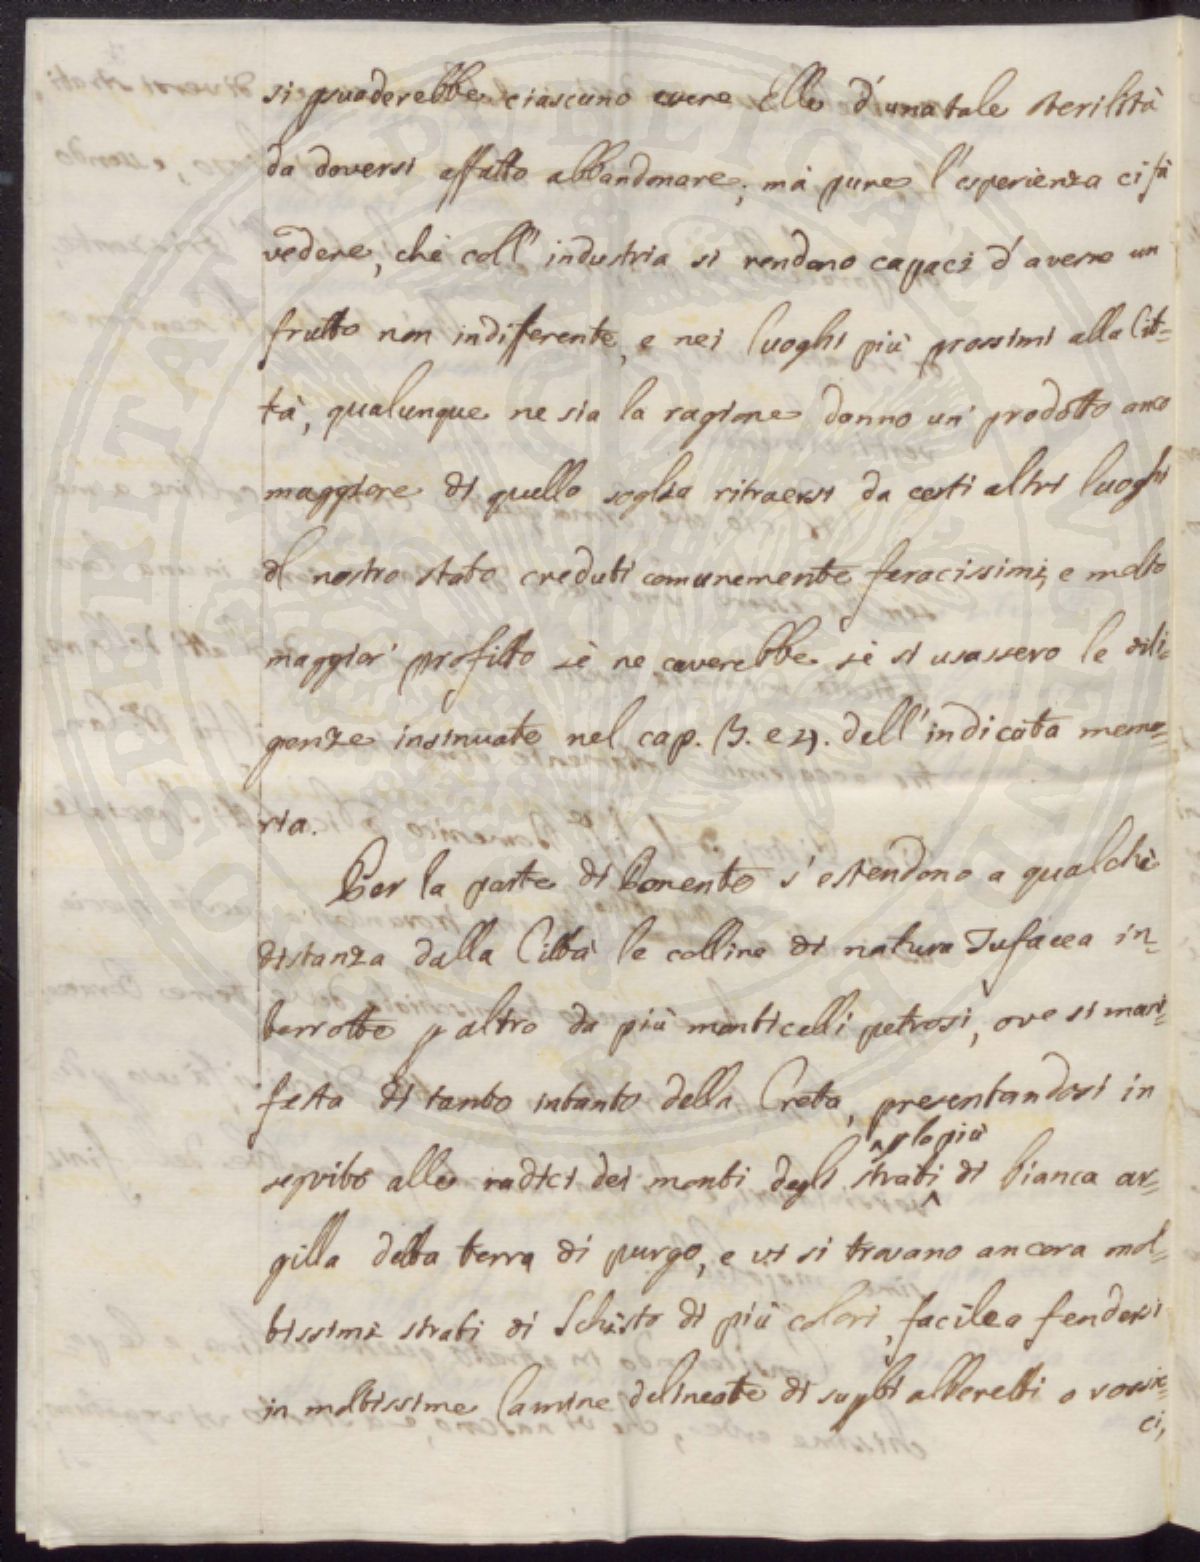 si p̱suaderebbe ciascuno essere Elle d'una tale sterilità
da doversi affatto abbandonare; mà pure l'esperienza ci fà
vedere, chè coll' industria si rendono capaci d'avere un
frutto non indifferente, e nei luoghi più prossimi alla Cit=
tà, qualunque ne sia la ragione danno un prodotto anco
maggiore di quello soglia ritraersi da certi altri luoghi
del nostro stato creduti comunemente feracissimi, e molto
maggior' profitto sè ne caverebbe sè si usassero le dili=
genze insinuate nel cap. 3. e 4. dell' indicata memo=
ria.
Per la parte di Ponente s'estendono a qualchè
distanza dalla Città le colline di natura Tufacea in=
terrotte p altro da più monticelli petrosi, ove si mani=
festa di tanto intanto della Creta, presentandosi in
p lo più
seguito alle radici dei monti degli strati di bianca ar=
gilla detta terra di purgo, e vi si trovano ancora mol=
tissimi strati di Schisto di più colori, facile a fendersi
in moltissime lamine delineate di sughi alberetti o
ci,